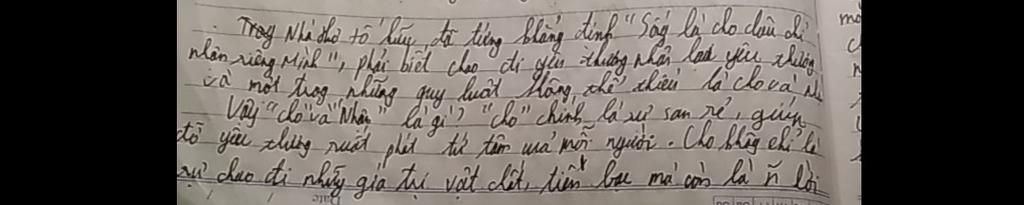 Trog Nhà thơ tố hữu, đã từng khẳng định "Sống là cho đâu chỉ
nhận riêng mình", phải biết chao đi yêu thương nhân lad yêu thương
và một trog những quy luật không thể thiếu là cho và nhậ
Vậy "cho" và "Nhận" là gì? "cho" chính là sự san sẻ, giúp
đỡ yêu thương xuất phát từ tâm của mỗi người. Cho khôg chỉ là
sự chao đi nhữg giá trị vật chất, tiền bạc mà còn là ñ lời